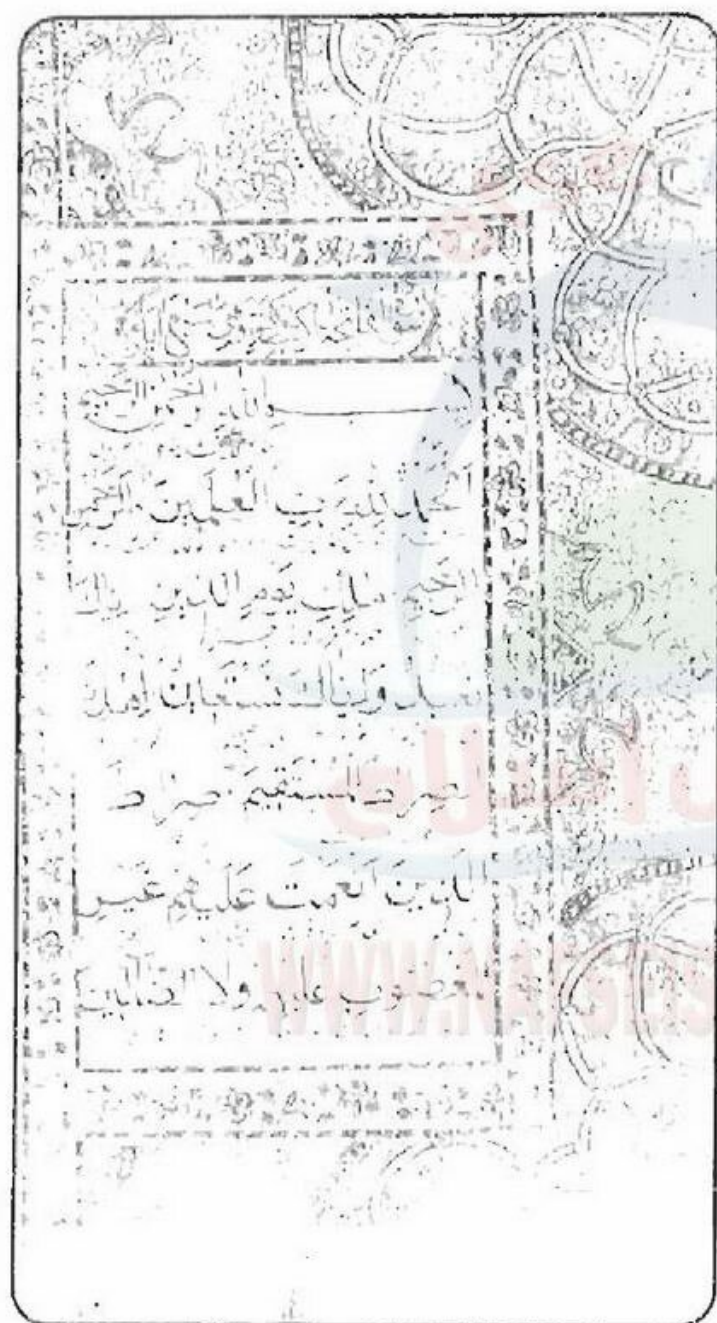 بسم الله الرحمن الرحيم
الحمد لله رب العلمين الرحمن
الرحيم ملك يوم الدين إياك
نعبد وإياك نستعين اهدنا
الصراط المستقيم صراط
الذين أنعمت عليهم غير
المغضوب عليهم ولا الضالين